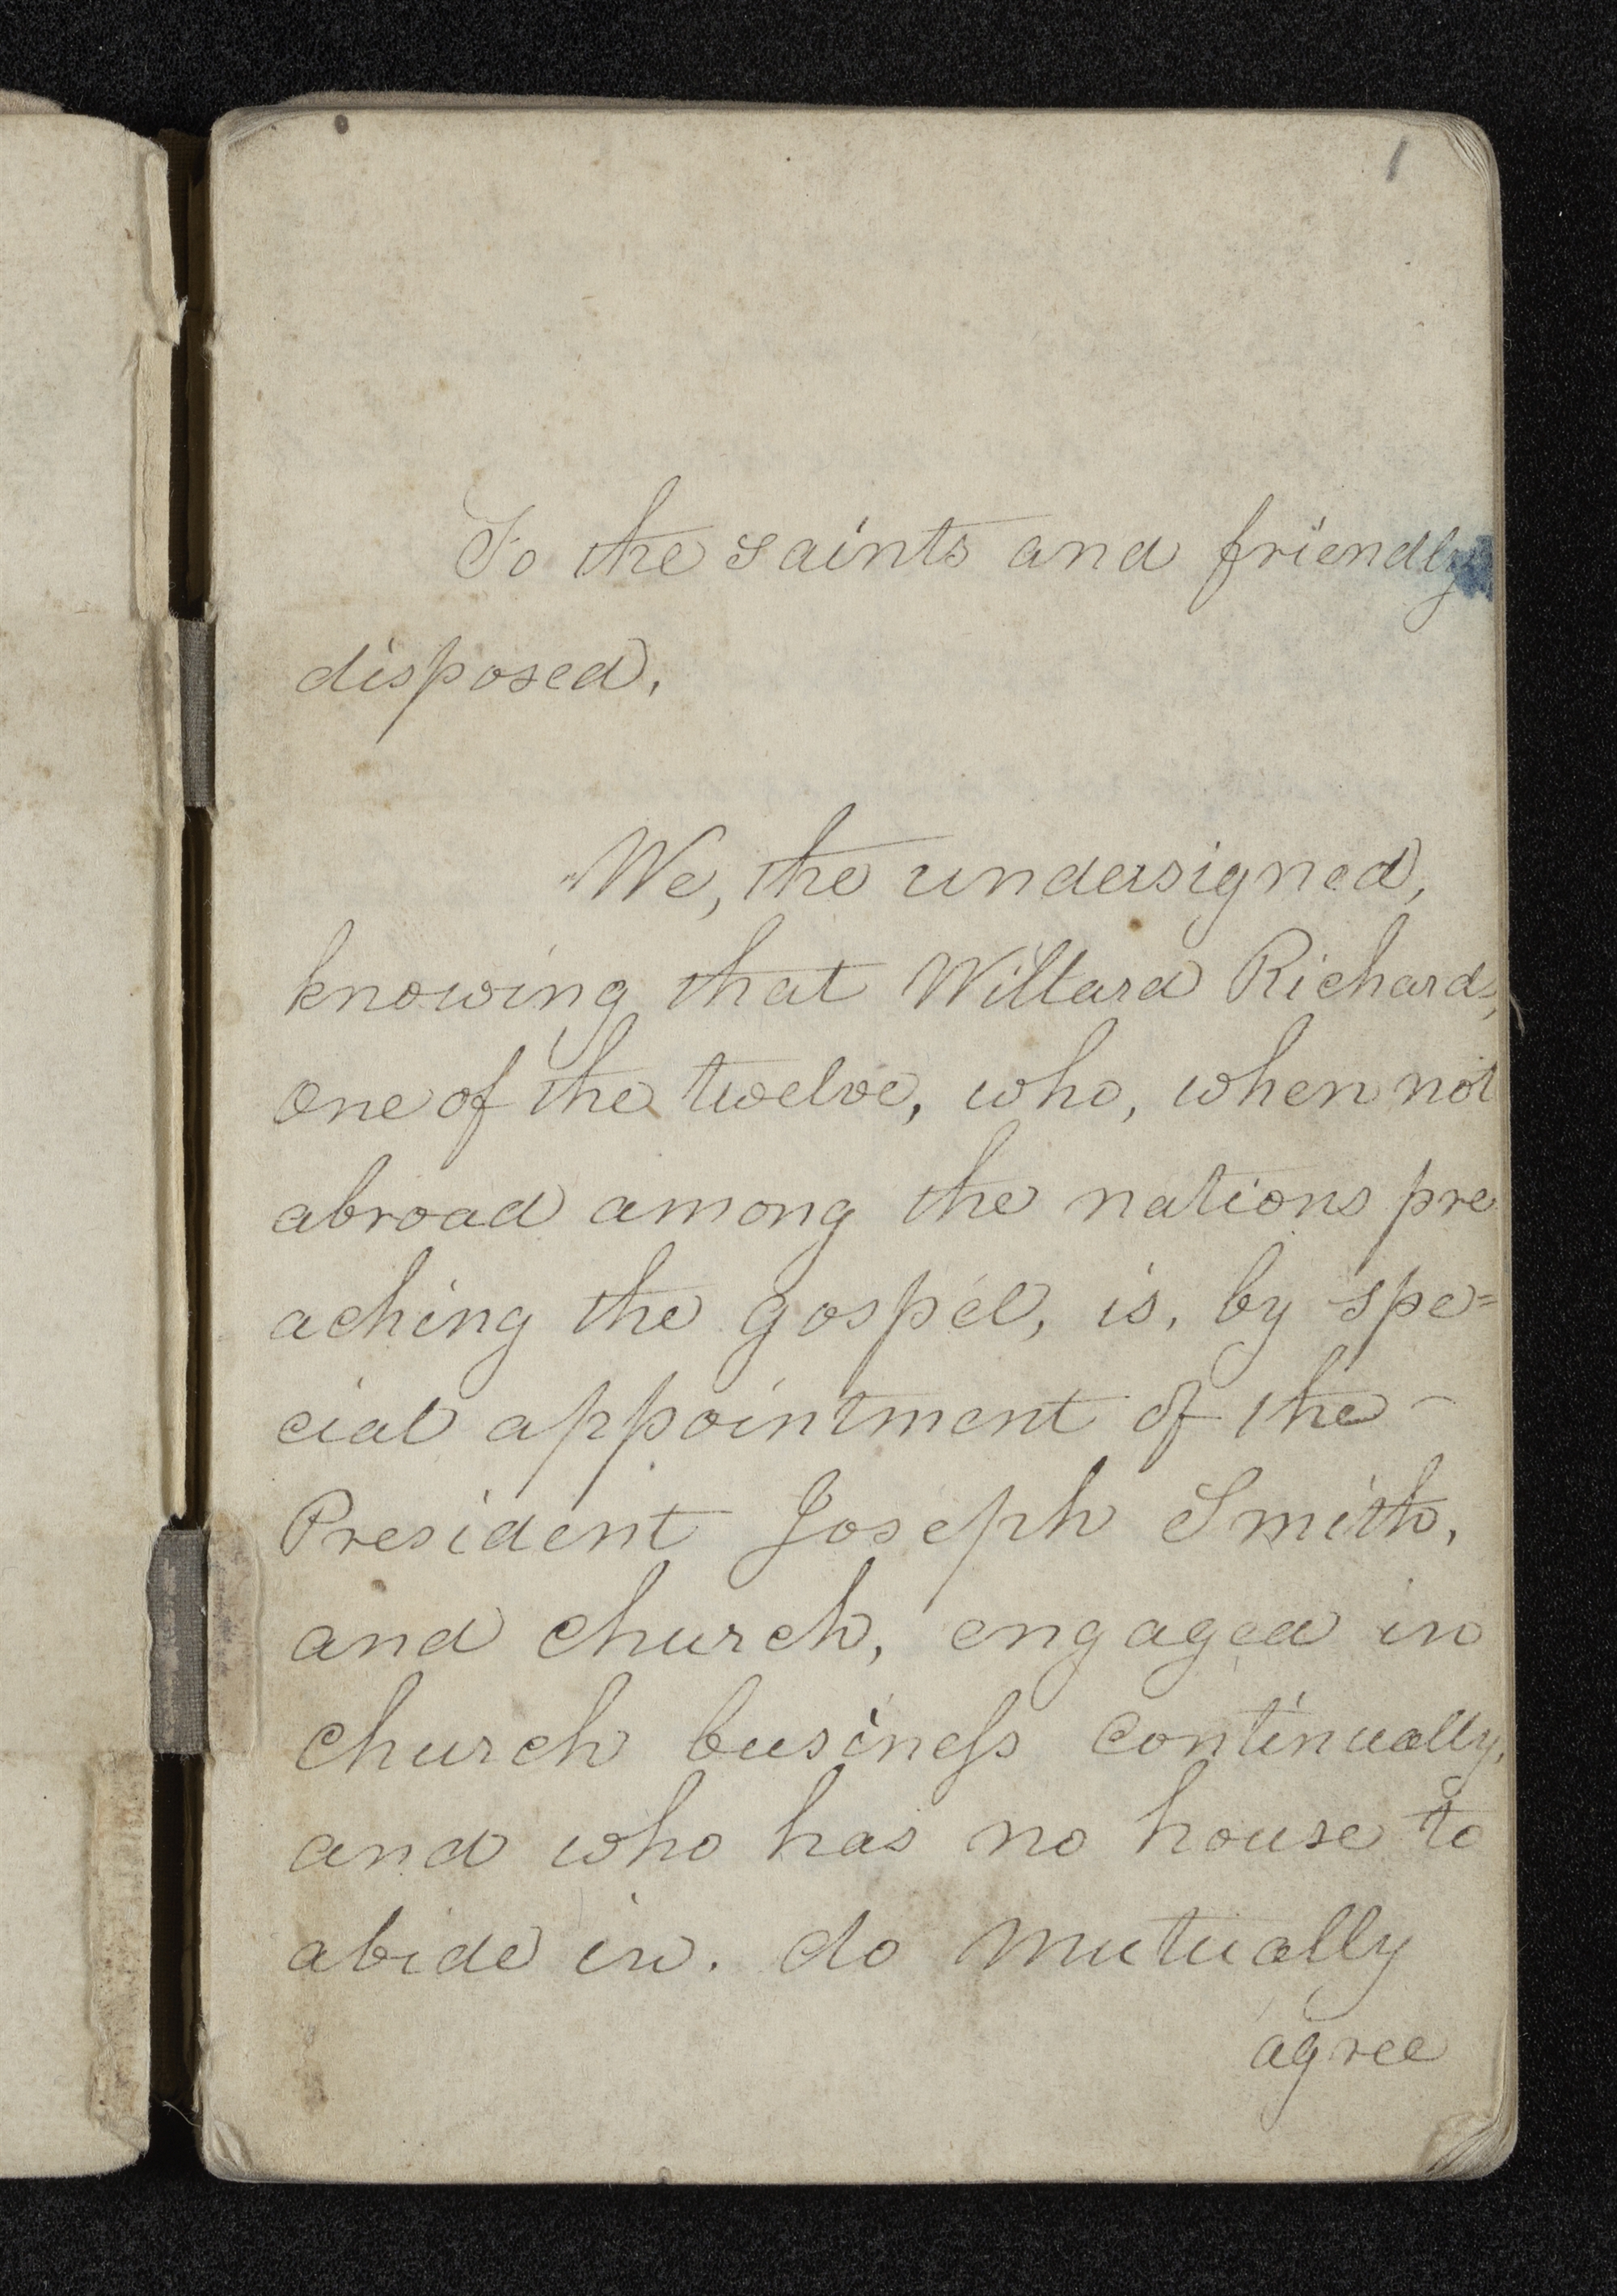 1
To the saints and friendly
disposed.
"We, the undersigned,
knowing that Willard Richards,
one of the twelve, who, when not
abroad among the nations pre
aching the gospel, is, by spe=
cial appointment of the -
President Joseph Smith,
and church, engaged in
church business continually,
and who has no house to
abide in. do mutually
agree